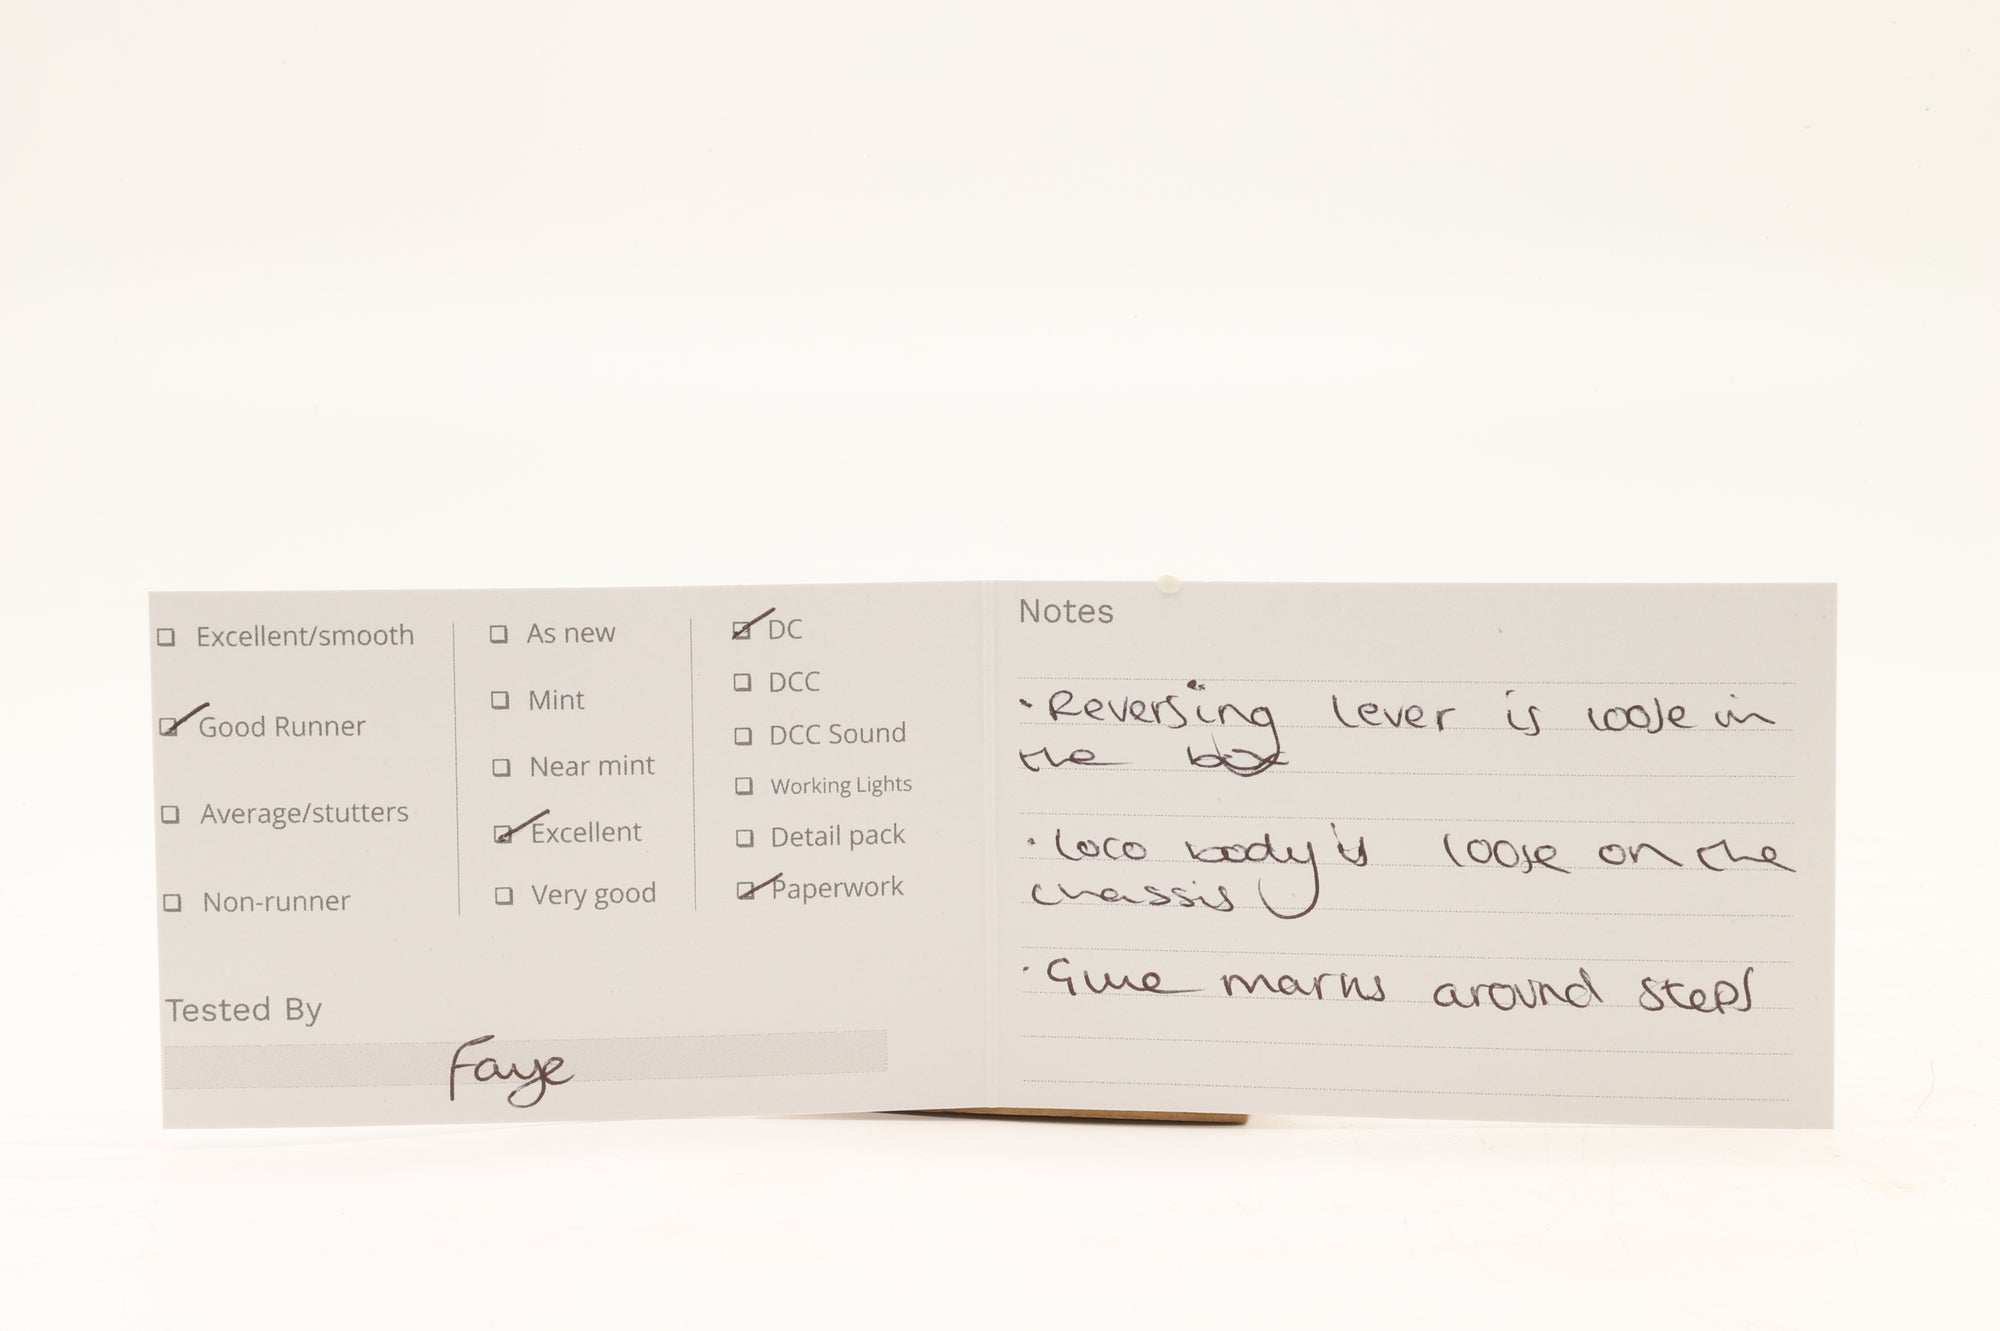 Excellent/smooth
Good Runner
Average/stutters
Non-runner
As new
Mint
Near mint
Excellent
Very good
DC
DCC
DCC Sound
Working Lights
Detail pack
Paperwork
Tested By
Faye
Notes
• Reversing lever is loose in
the box
• Loco body is loose on the
chassis
• Glue marks around steps